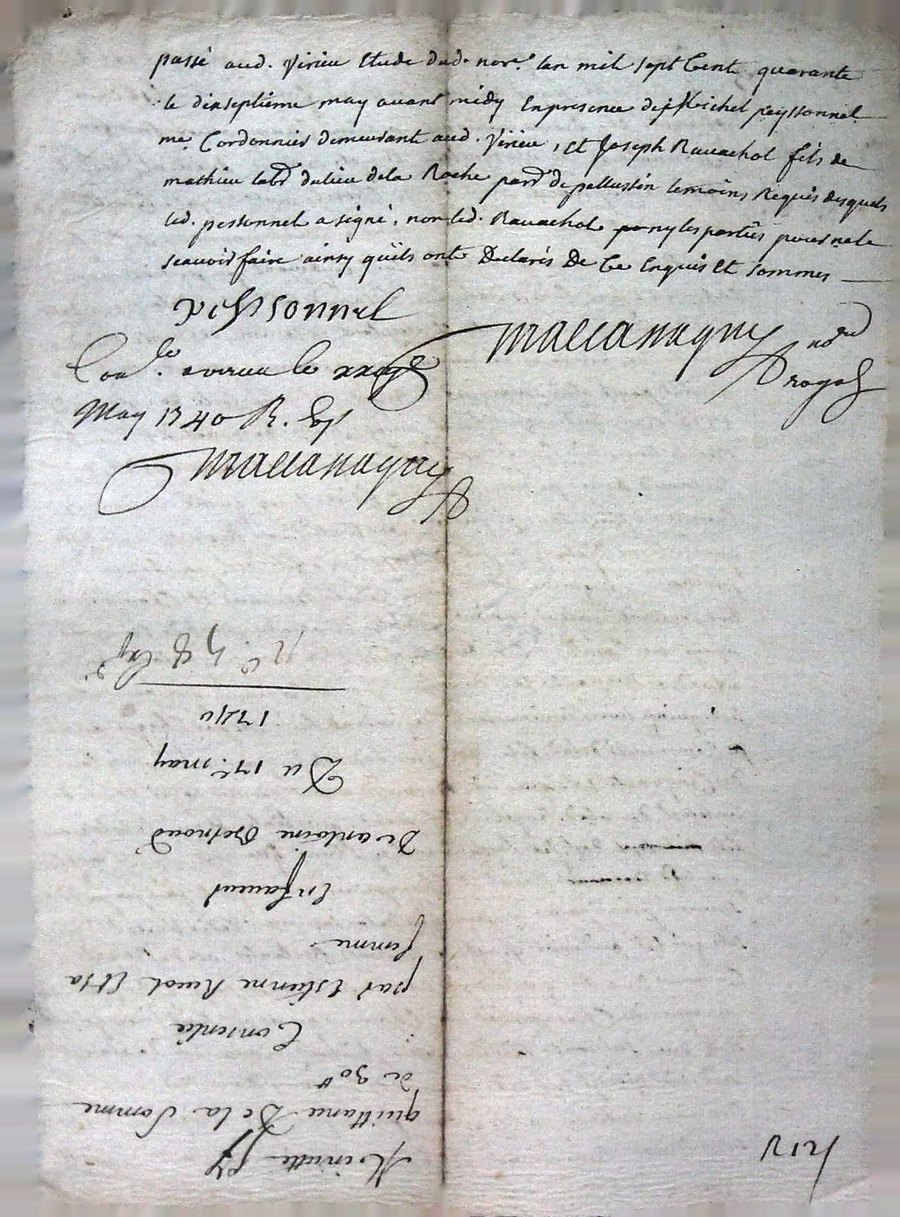 passé aud. Virieu Etude dud. nore. lan mil sept Cent quarante
le dixseptiême may avant midy En presence de Michel peyssonnel
me. Cordonnier demeurant aud. Virieu, et Joseph Ravachol fils de
mathieu labr du lieu de la Roche parr de pellussin temoins Requis desquels
led. peissonnel a signé, non led. Ravachol ny les parties pour ne le
sçavoir faire ainsy qu'ils ont Declarés De Ce Enquis et sommes
peyssonnel
Maccanaguy
no.
royal
Con.le a virieu le
May 1740 R.
Maccanaguy
Minutte
quittance De la Somme
de 30
Consentie
par Estienne Ruol Et sa
femme
En faveur
De antoine Bernoud
Du 17e. may
1740
R 12